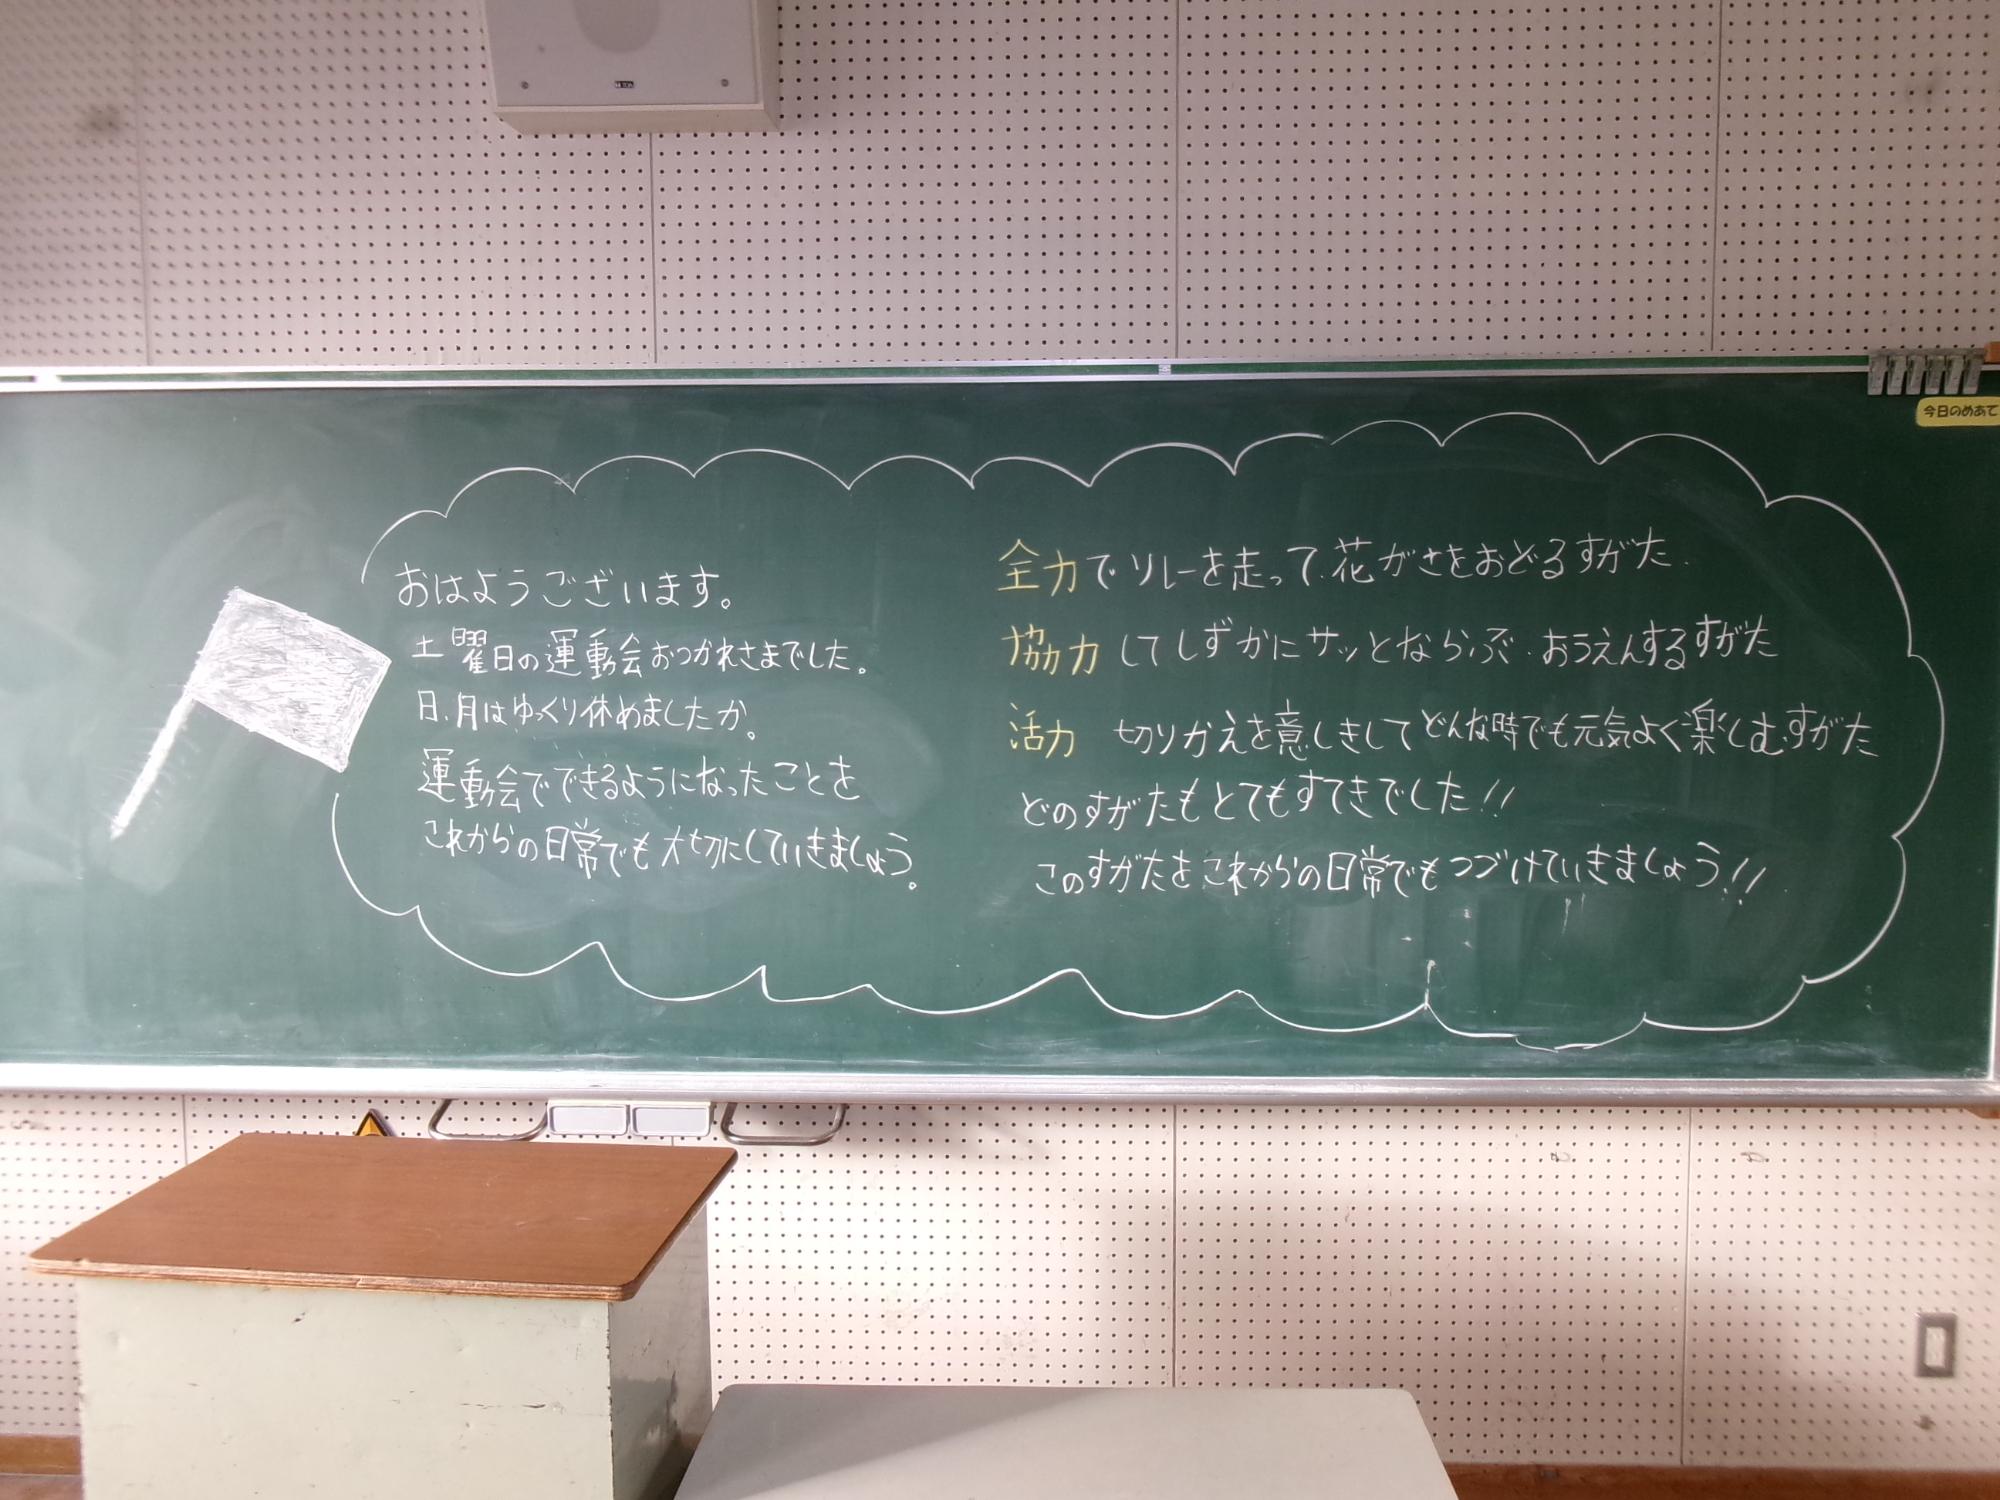 おはようございます。
土曜日の運動会おつかれさまでした。
日、月はゆっくり休めましたか。
運動会でできるようになったことを
これからの日常でも大切にしていきましょう。
全力でリレーを走って、花がさをおどるすがた、
協力してしずかにサッとならぶ、おうえんするすがた
活力 切りかえを意しきしてどんな時でも元気よく楽しむすがた
どのすがたもとてもすてきでした!!
このすがたをこれからの日常でもつづけていきましょう!!
今日のめあて